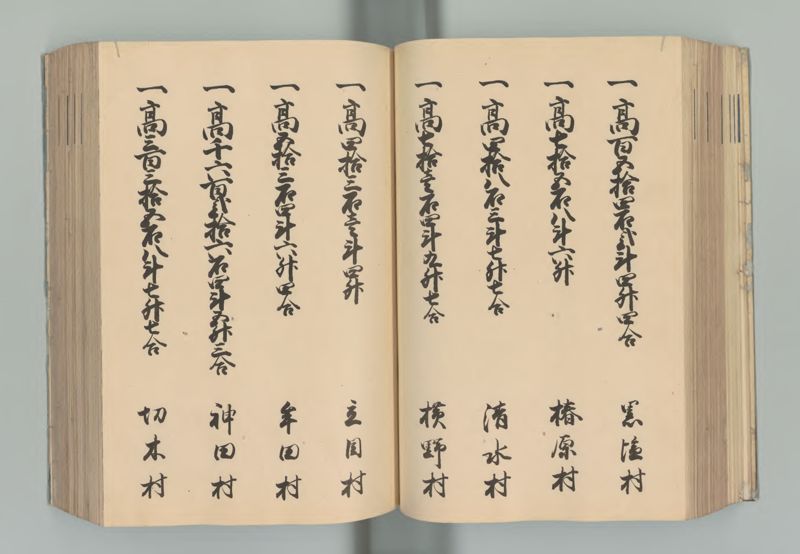 一高百五拾四石弐斗四升四合 黒塩村
一高七拾五石八斗六升 椿原村
一高四拾八石三斗七升七合 清水村
一高七拾壱石四斗九升七合 横野村
一高四拾三石壱斗四升 立目村
一高五拾三石四斗六升四合 牟田村
一高千六百弐拾六石四斗五升三合 神田村
一高三百三拾五石八斗七升七合 切木村